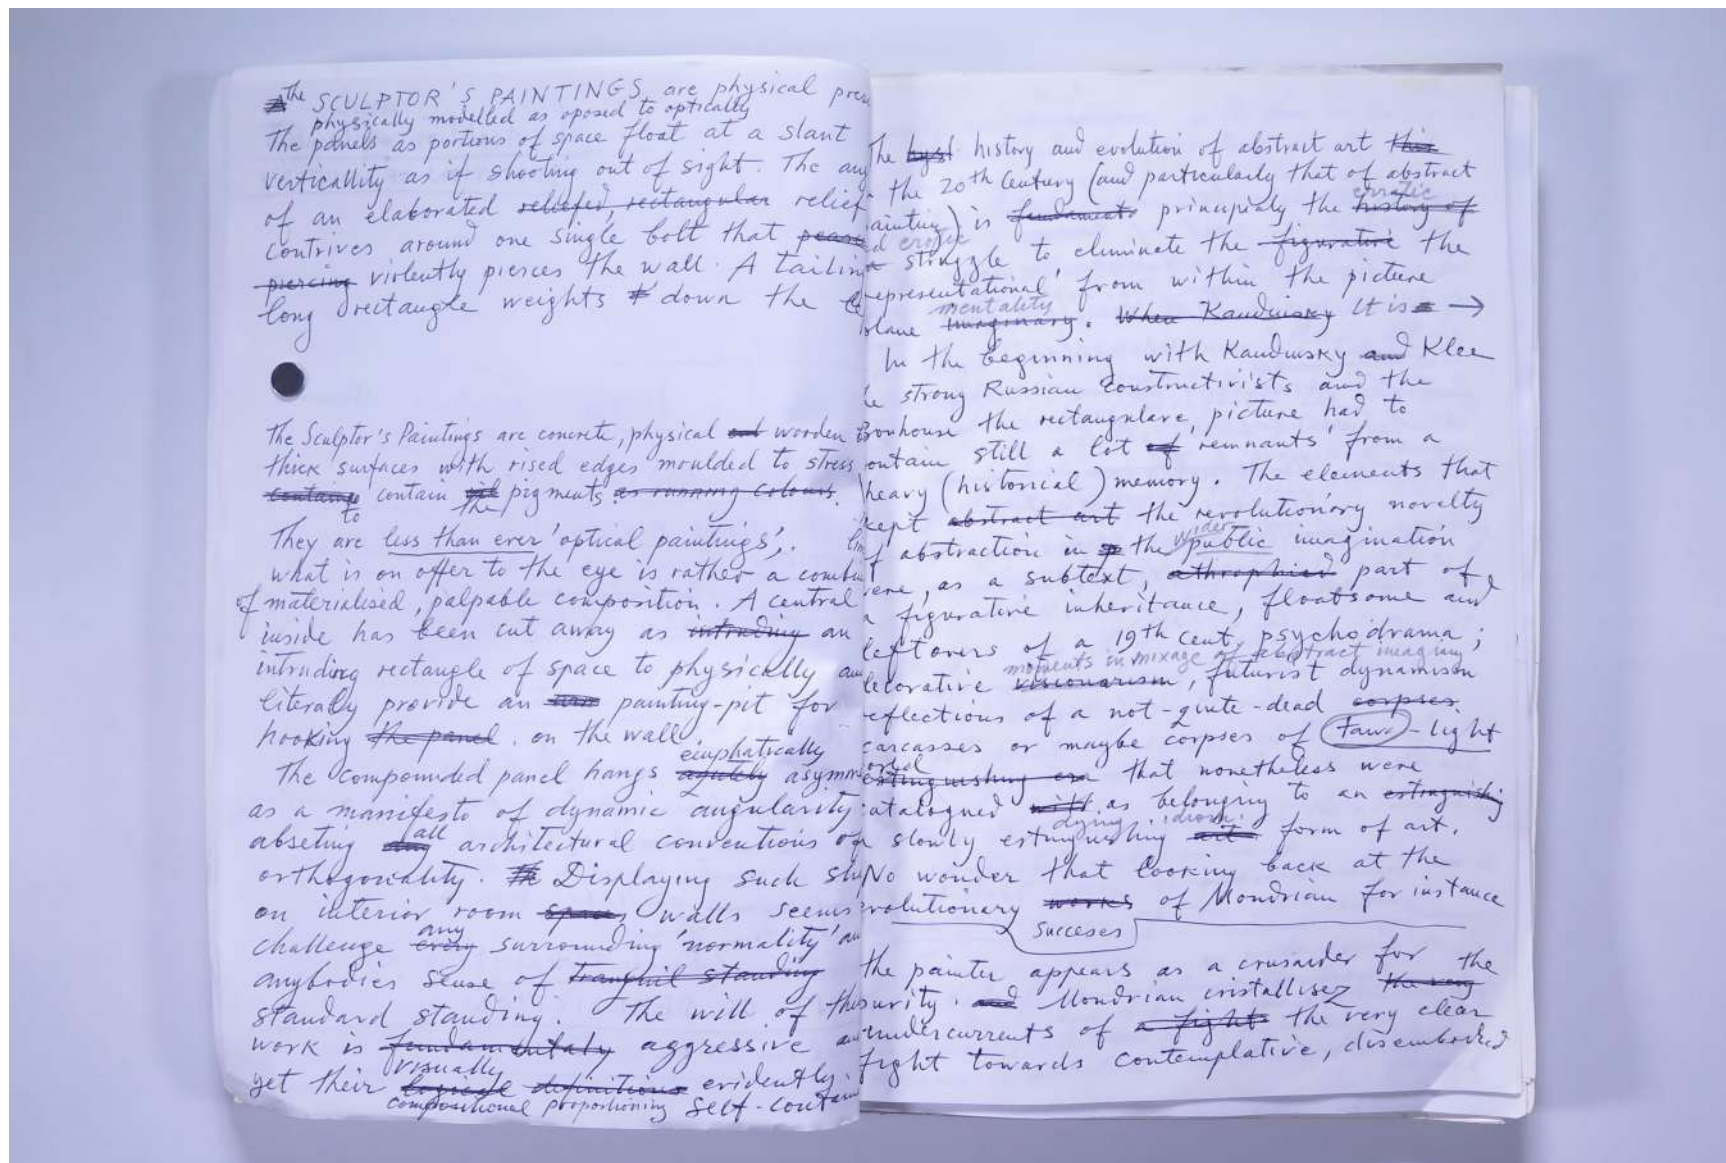 The SCULPTOR'S PAINTINGS are physical
physically modelled as oposed to optically
The panels as portions of space float at a slant
verticallity as if shooting out of sight. The
of an elaborated reliefed, rectangular relief
contrives around one single bolt that
piercing violently pierces the wall. A
long rectangle weights down the
The Sculptor's Paintings are concrete, physical and wooden
thick surfaces with rised edges moulded to stress
containg contain pigments as running colours.
to the
They are less than ever 'optical paintings'.
what is on offer to the eye is rather a
of materialised, palpable composition. A central
inside has been cut away as intruding an
intruding rectangle of space to physically
literally provide an painting-pit for
hooking the panel. on the wall.
emphatically
The compounded panel hangs
as a manifesto of dynamic angularity
abseting any all architectural conventions
orthogonality. Displaying such
on interior room spaces walls seems
any
challenge every surrounding 'normality'
anybodies sense of tranquil standing
standard standing. The will of
work is fundamentaly aggressive
visually
yet their logical definitions evidently.
compositional proportioning self-
The history and evolution of abstract art this
the 20th Century (and particularly that of abstract
erratic
is fundaments principialy the history of
erotic
struggle to eliminate the figurative the
representational' from within the picture
mentality
imaginary. When Kandinsky It is →
In the beginning with Kandinsky and Klee
strong Russian constructivists and the
the rectangulare, picture had to
still a lot of remnants' from a
heavy (historical) memory. The elements that
kept abstract art the revolutionary novelty
wider
of abstraction in the public imagination
as a subtext, athrophied part of
figurative inheritance, floatsome and
leftovers of a 19th cent. psychodrama;
moments in mixage of abstract imaging
visionarism, futurist dynamism
reflections of a not-quite-dead corpses
carcasses or maybe corpses of -light
estinguishing era that nonetheless were
catalogued with as belonging to an estinguishing
dying idiom.
slowly estinguishing art form of art.
No wonder that looking back at the
works of Mondrian for instance
succeses
the painter appears as a crusaider for the
Mondrian cristallisez the very
undercurrents of a fight the very clear
fight towards contemplative, disembodied